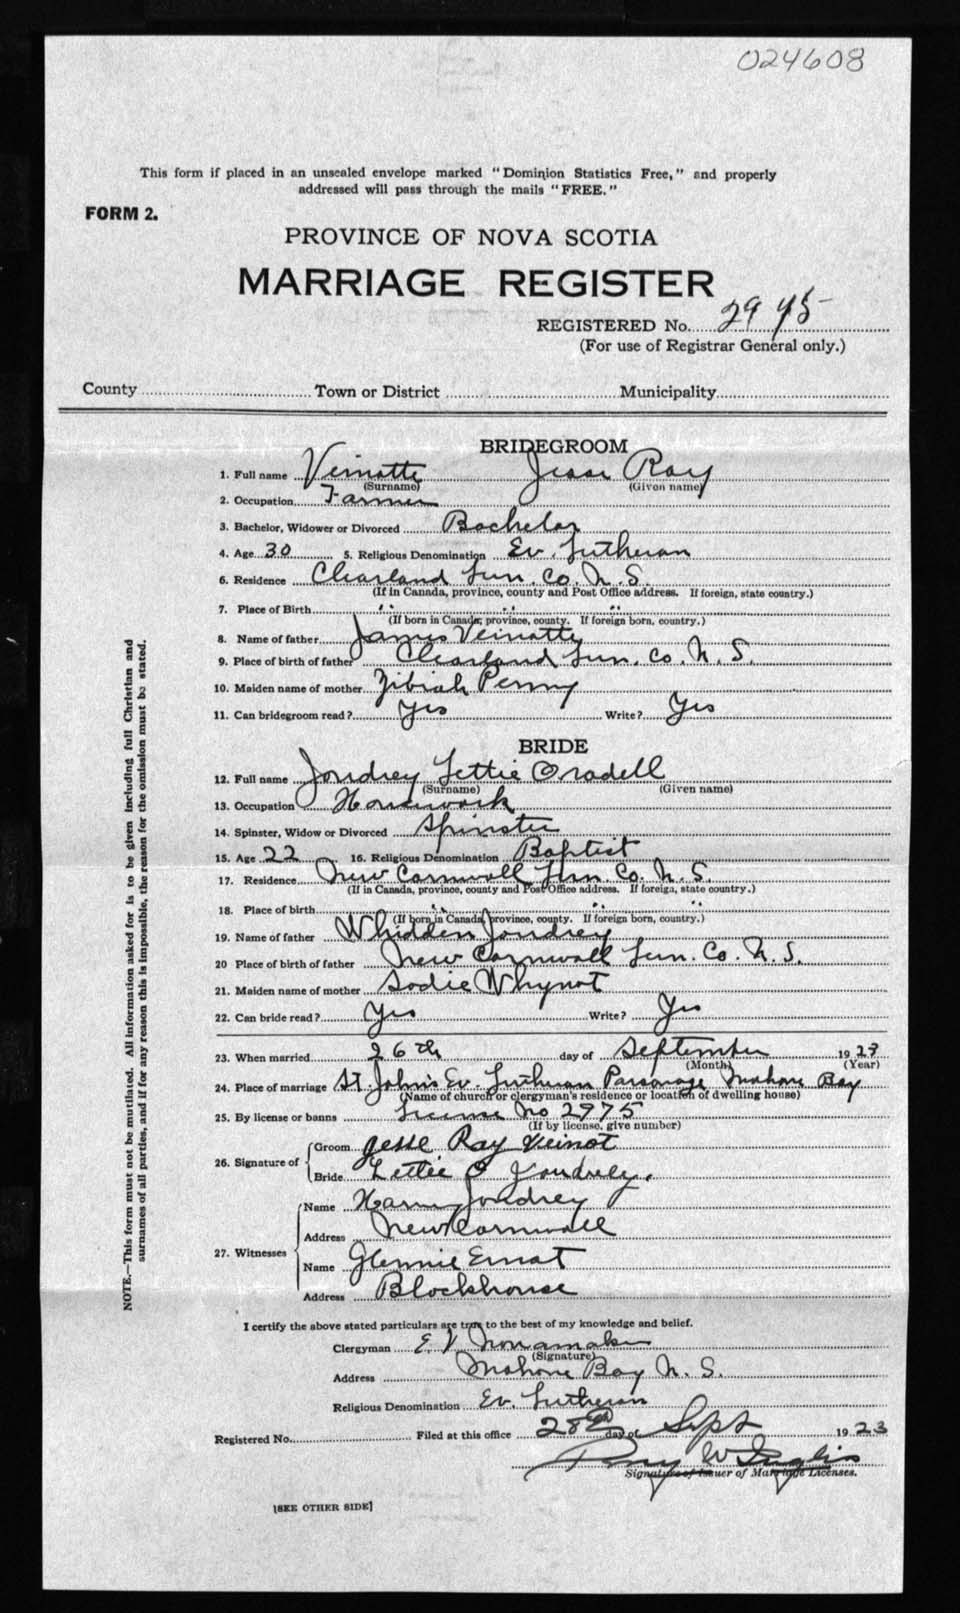 024608
This form if placed in an unsealed envelope marked "Dominion Statistics Free," and properly
addressed will pass through the mails "FREE."
FORM 2.
PROVINCE OF NOVA SCOTIA
MARRIAGE REGISTER
REGISTERED No. 2975
(For use of Registrar General only.)
County Town or District Municipality
BRIDEGROOM
1. Full name Veinotte Jesse Ray
(Surname) (Given name)
2. Occupation Farmer
3. Bachelor, Widower or Divorced Bachelor
4. Age 30 5. Religious Denomination Ev. Lutheran
6. Residence Clearland Lun. Co. N. S.
(If in Canada, province, county and Post Office address. If foreign, state country.)
7. Place of Birth " " "
(If born in Canada, province, county. If foreign born, country.)
8. Name of father James Veinotte
9. Place of birth of father Clearland Lun. Co. N. S.
10. Maiden name of mother Zibiah Penny
11. Can bridegroom read? Yes Write? Yes
BRIDE
12. Full name Joudrey Lettie Oradell
(Surname) (Given name)
13. Occupation Housework
14. Spinster, Widow or Divorced Spinster
15. Age 22 16. Religious Denomination Baptist
17. Residence New Cornwall Lun. Co. N. S.
(If in Canada, province, county and Post Office address. If foreign, state country.)
18. Place of birth " " "
(If born in Canada, province, county. If foreign born, country.)
19. Name of father Whidden Joudrey
20 Place of birth of father New Cornwall Lun. Co. N. S.
21. Maiden name of mother Sadie Whynot
22. Can bride read? Yes Write? Yes
23. When married 26th day of September 1923
(Month) (Year)
24. Place of marriage St. John's Ev. Lutheran Parsonage Mahone Bay
(Name of church or clergyman's residence or location of dwelling house)
25. By license or banns License No 2975
(If by license, give number)
26. Signature of Groom Jesse Ray Veinot
Bride Lettie O Joudrey.
27. Witnesses Name Harry Joudrey
Address New Cornwall
Name Glennie Ernst
Address Blockhouse
I certify the above stated particulars are true to the best of my knowledge and belief.
Clergyman E V Nonamaker
(Signature)
Address Mahone Bay N. S.
Religious Denomination Ev. Lutheran
Registered No. Filed at this office 28th day of Sept 1923
W Inglis
Signature of Issuer of Marriage Licenses.
[SEE OTHER SIDE]
NOTE.—This form must not be mutilated. All information asked for is to be given including full Christian and
surnames of all parties, and if for any reason this is impossible, the reason for the omission must be stated.